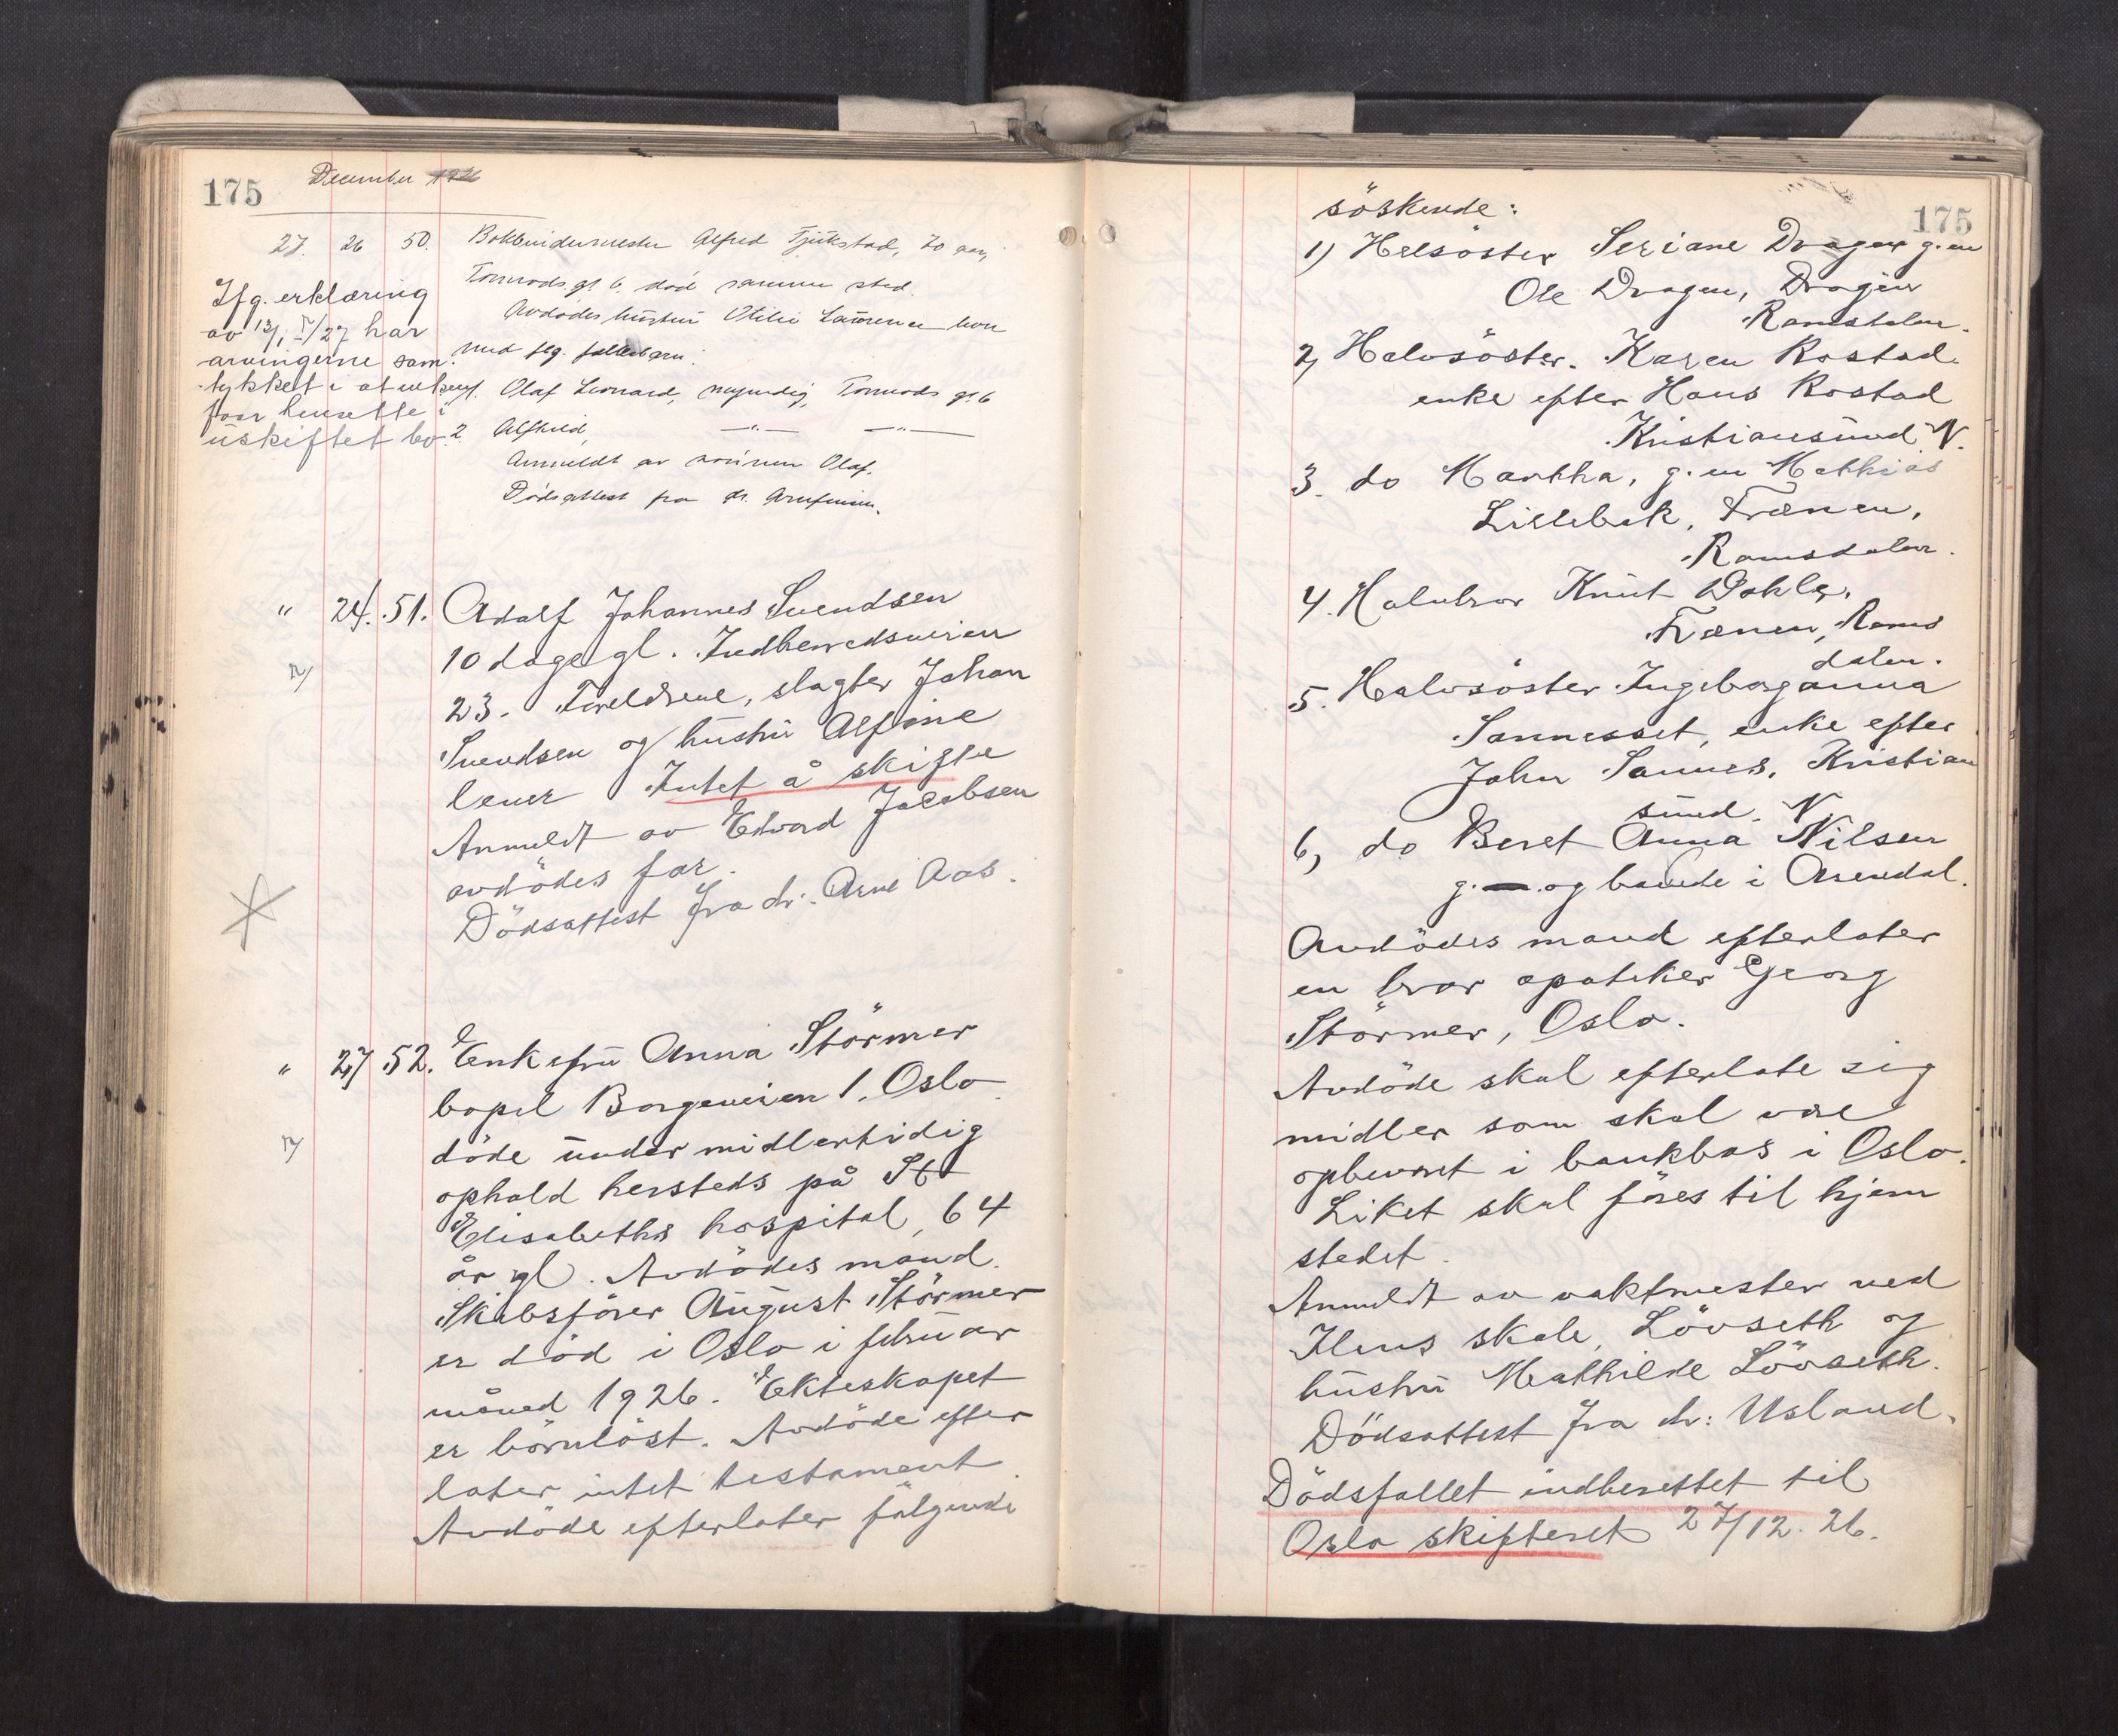 175
December 1926
27. 26 50. Bokbindermester Alfred Tjukstad, 70 aar,
Tormods gt 6, död samme sted.
Avdödes hustru Otilie Laurence lever
med flg. fellesbarn:
1. Olaf Leonard, myndig, Tormods gt 6
2. Alfhild, —"— —"—
Anmeldt av sönnen Olaf.
Dödsattest fra dr.
Ifg. erklæring
av 13/1 27 har
arvingerne sam-
tykket i at enken
faar hensitte i
uskiftet bo.
" 24. 51. Adolf Johannes Svendsen
10 dage gl. Indherredsveien
23. Foreldrene, slagter Johan
Svendsen og hustru Alfine
lever Intet å skifte
Anmeldt av Edvard Jacobsen
avdödes far.
Dödsattest fra dr. Arne Aas.
" 27 52. Enkefru Anna Störmer
bopel Borgenveien 1, Oslo.
döde under midlertidig
ophold hersteds på St
Elisabeths hospital, 64
år gl. Avdödes mand.
Skibsförer August Störmer
er död i Oslo i februar
måned 1926. Ekteskapet
er börnlöst. Avdöde efter
later intet testament.
Avdöde efterlater fölgende
175
söskende:
1) Helsöster Seriane Dragen g. m
Ole Dragen, Dragen
Romsdalen.
2, Halvsöster. Karen Rostad
enke efter Hans Rostad
Kristiansund N.
3. do Martha, g. m Mathias
Lillebak, Frænen,
Romsdalen.
4. Halvbror Knut Dahle,
Frænen, Roms
dalen.
5. Halvsöster Ingeborganna
Sannesset, enke efter
John Sannes, Kristian
sund. N.
6, do Beret Anna Nilsen
g. og boende i Arendal.
Avdödes mand efterlater
en bror apoteker Georg
Störmer, Oslo.
Avdöde skal efterlate sig
midler som skal være
opbevaret i bankbos i Oslo.
Liket skal föres til hjem
stedet.
Anmeldt av vaktmester ved
Ilens skole, Lövseth og
hustru Mathilde Lövseth.
Dödsattest fra dr: Usland.
Dödsfallet indberettet til
Oslo skifteret 27/12. 26.